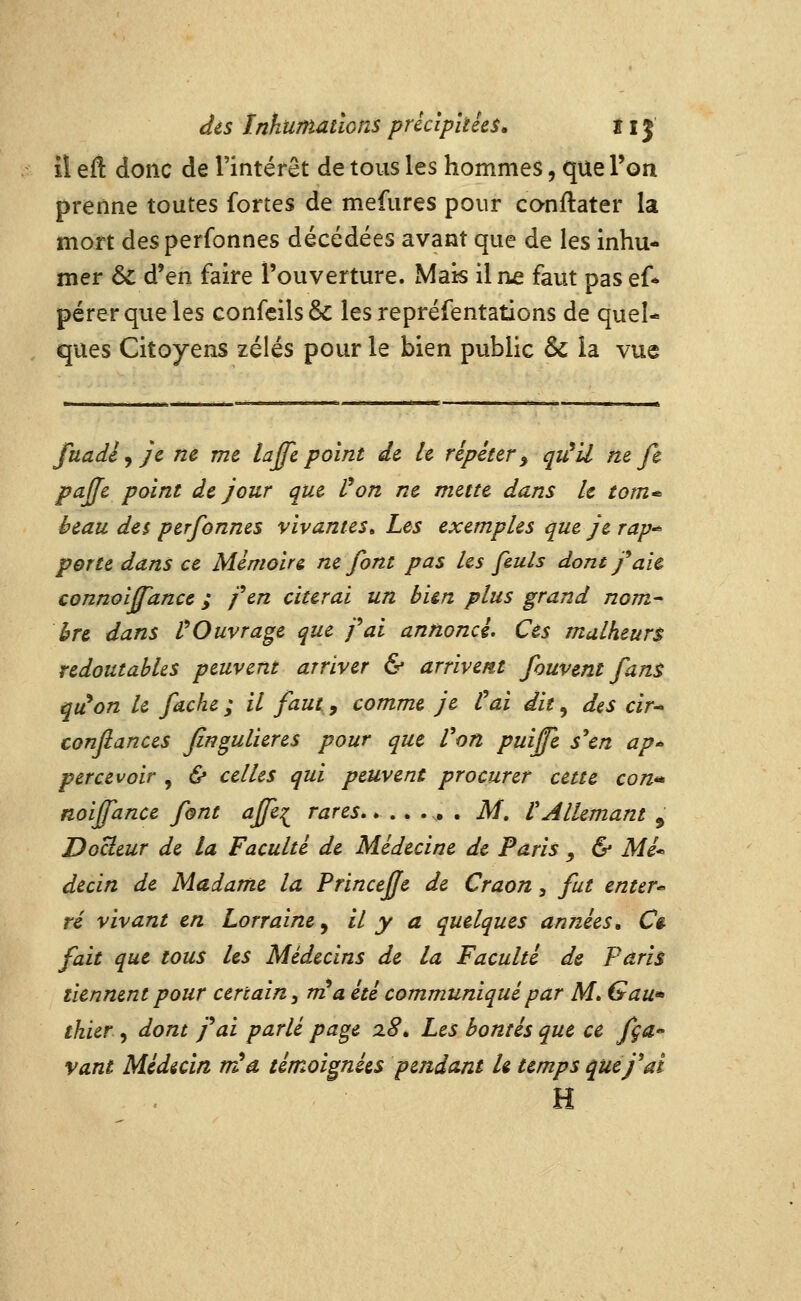 des Inhumations précipitées. 113
il eſt donc de l'intérêt de tous les hommes, que l'on
prenne toutes ſortes de meſures pour conſtater la
mort des perſonnes décédées avant que de les inhu-
mer & d'en faire l'ouverture. Mais il ne faut pas eſ-
pérer que les conſeils & les repréſentations de quel-
ques Citoyens zélés pour le bien public & la vue
ſuadé, je ne me laſſe point de le répéter, qu'il ne ſe
paſſe point de jour que l'on ne mette dans le tom-
beau des perſonnes vivantes. Les exemples que je rap-
porte dans ce Mémoire ne ſont pas les ſeuls dont j'aie
connoiſſance ; j'en citerai un bien plus grand nom-
bre dans l'Ouvrage que j'ai annoncé. Ces malheurs
redoutables peuvent arriver & arrivent ſouvent ſans
qu'on le ſache ; il faut, comme je l'ai dit, des cir-
conſtances ſingulieres pour que l'on puiſſe s'en ap-
percevoir, & celles qui peuvent procurer cette con-
noiſſance ſont aſſez rares. . . . . . . M. l'Allemant,
Docteur de la Faculté de Médecine de Paris, & Mé-
decin de Madame la Princeſſe de Craon, fut enter-
ré vivant en Lorraine, il y a quelques années. Ce
fait que tous les Médecins de la Faculté de Paris
tiennent pour certain, m'a été communiqué par M. Gau-
thier, dont j'ai parlé page 28. Les bontés que ce ſça-
vant Médecin m'a témoignées pendant le temps que j'ai
H